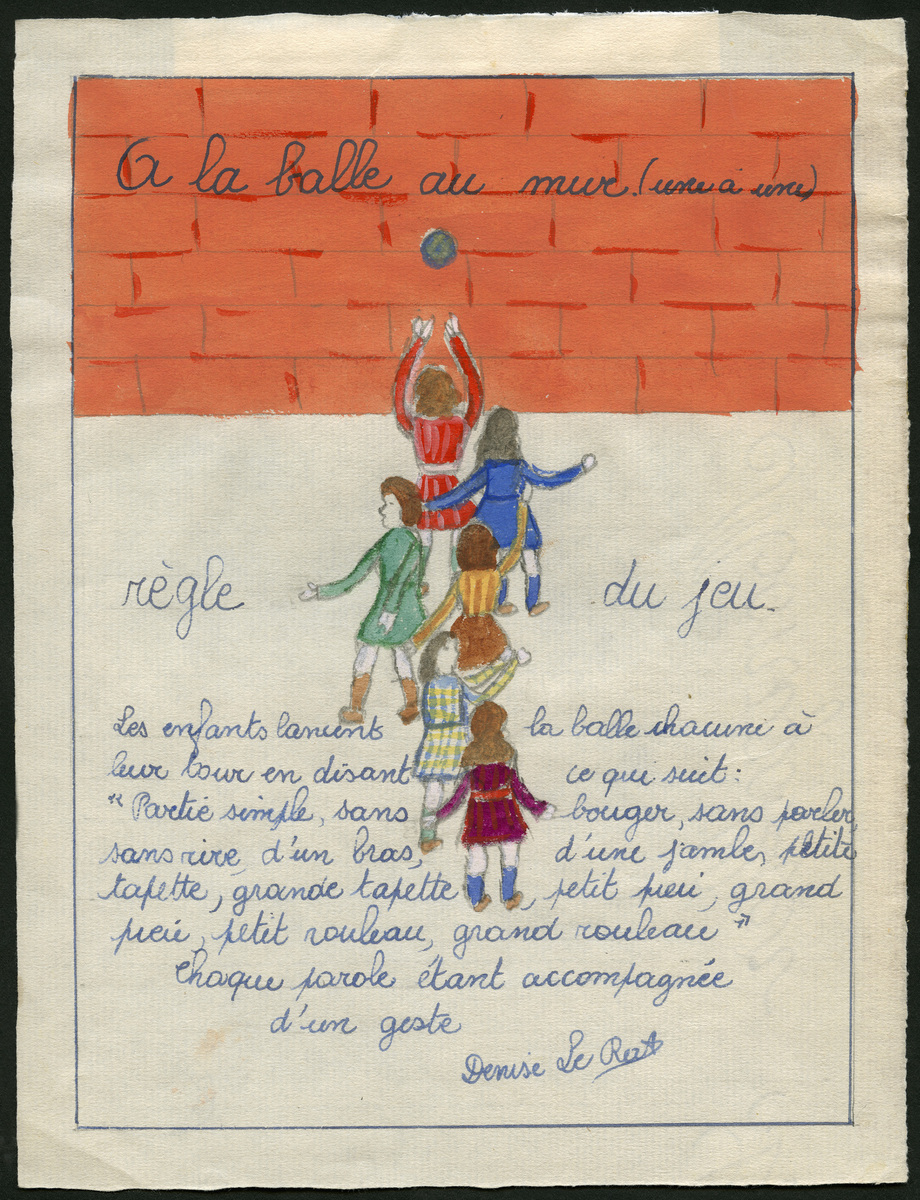 A la balle au mur. (une à une)
règle du jeu.
Les enfants lancent la balle chacune à
leur tour en disant ce qui suit :
" Partie simple, sans bouger, sans parler,
sans rire, d'un bras, d'une jambe, petite
tapette, grande tapette, petit pieu, grand
pieu, petit rouleau, grand rouleau "
Chaque parole étant accompagnée
d'un geste
Denise Le